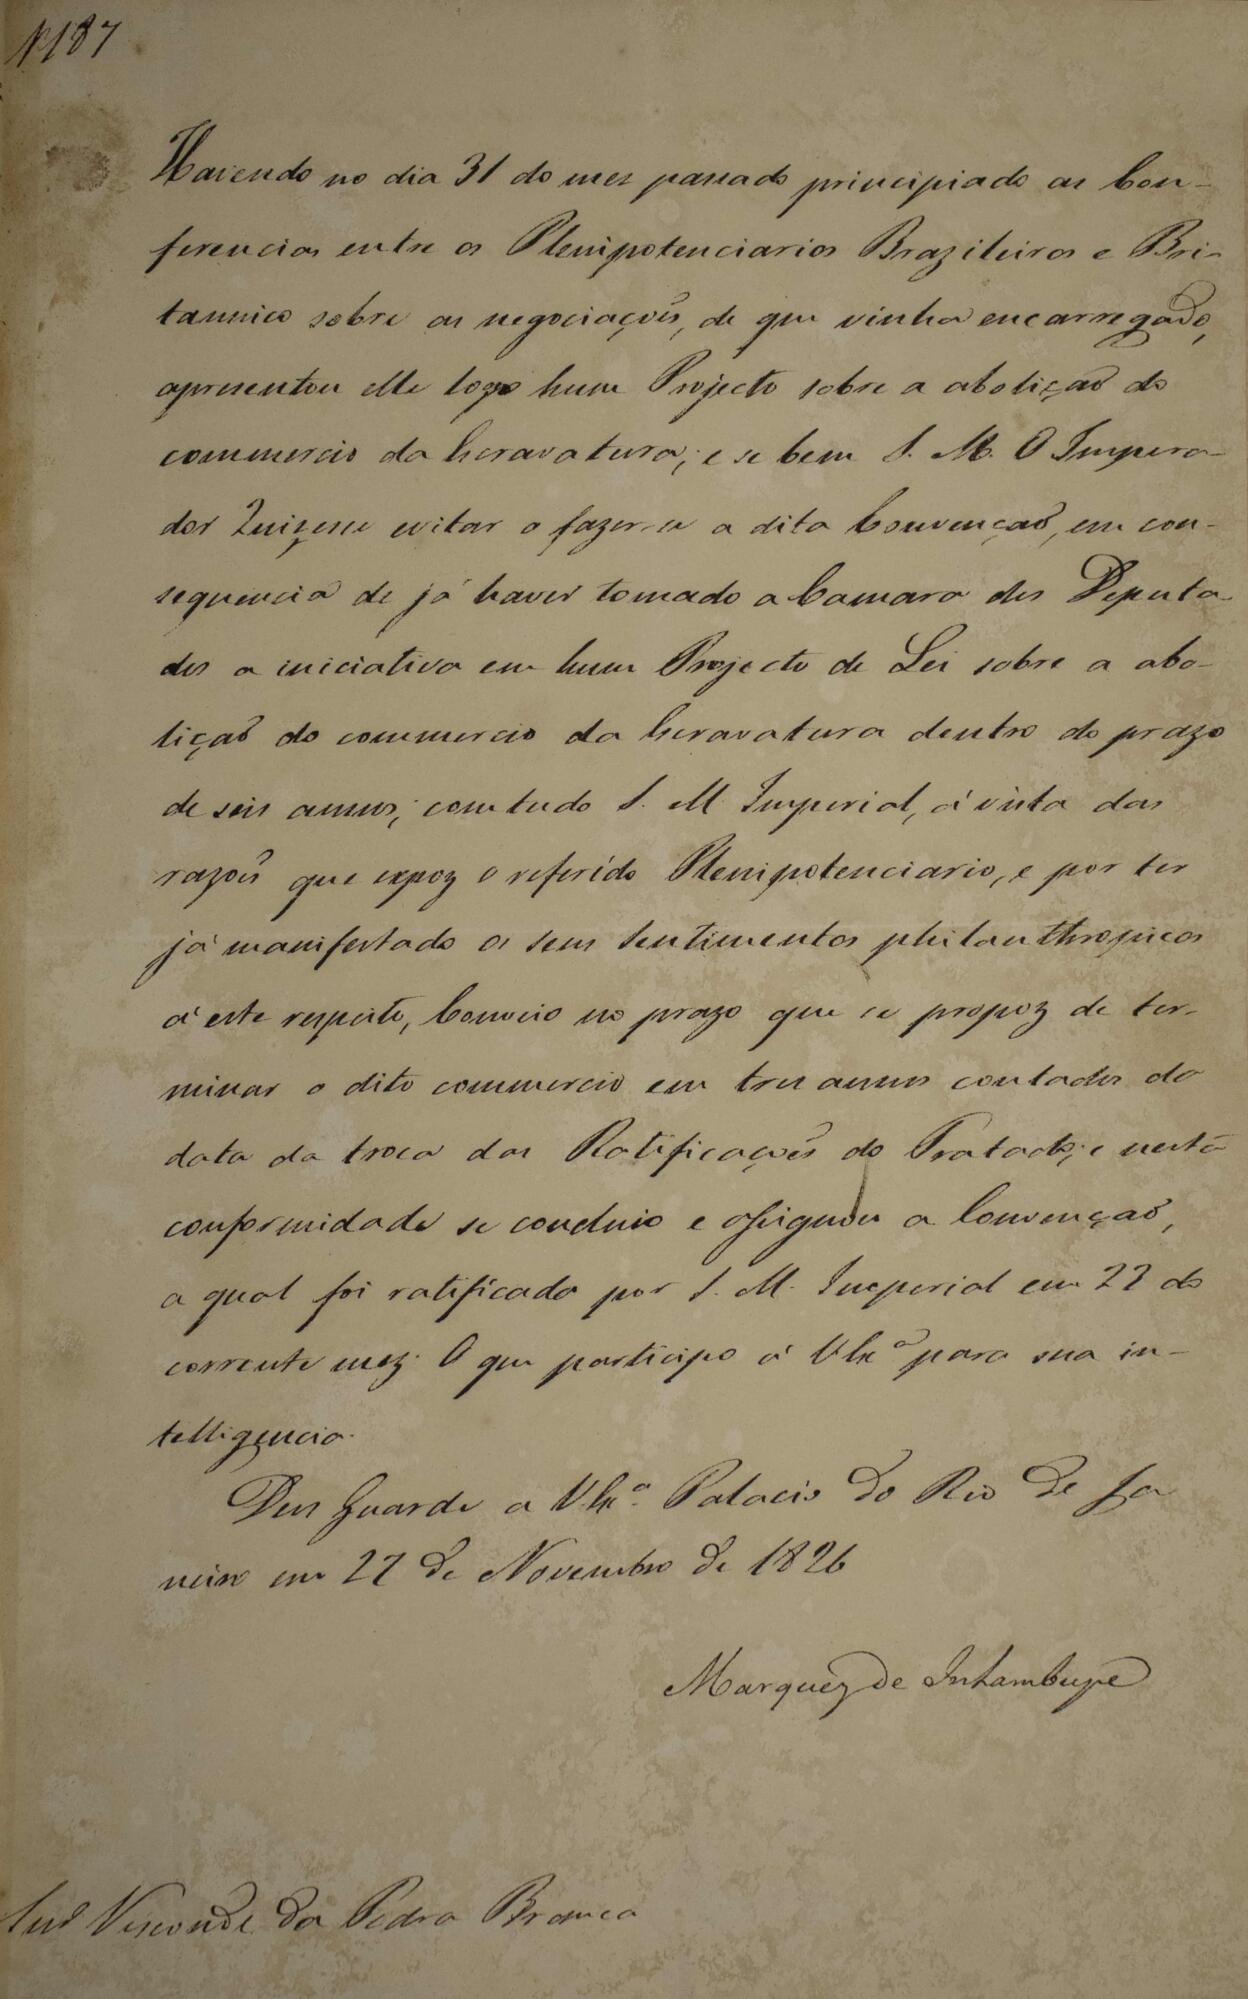 N 187
Havendo no dia 31 do mes passado principiado as Con-
ferencias entre os Plenipotenciarios Brazileiros e Bri-
tannico sobre as negociaçoẽs, de que vinha encarregado,
apresentou elle logo hum Projecto sobre a abolição do
commercio da Escravatura; e se bem S. M. O Impera-
dor Quizesse evitar o fazer-se a dita Convenção, em con-
sequencia de já haver tomado a Camara dos Deputa-
dos a iniciativa em hum Projecto de Lei sobre a abo-
lição do commercio da Escravatura dentro do prazo
de seis annos; comtudo S. M. Imperial, á vista das
razoẽs que expoz o referido Plenipotenciario, e por ter
já manifestado os seus Sentimentos philanthropicos
á este respeito, Conveio no prazo que se propoz de ter-
minar o dito commercio em tres annos contados da
data da troca das Ratificaçoẽs do Tratado; e nesta
conformidade se concluio e assignou a Convenção,
a qual foi ratificada por S. M. Imperial em 22 do
corrente mez. O que participo á V Exª para sua in-
telligencia.
Deus Guarde a V Exª. Palacio do Rio de Ja
neiro em 27 de Novembro de 1826
Marquez de Inhambupe
Snr Visconde da Pedra Branca